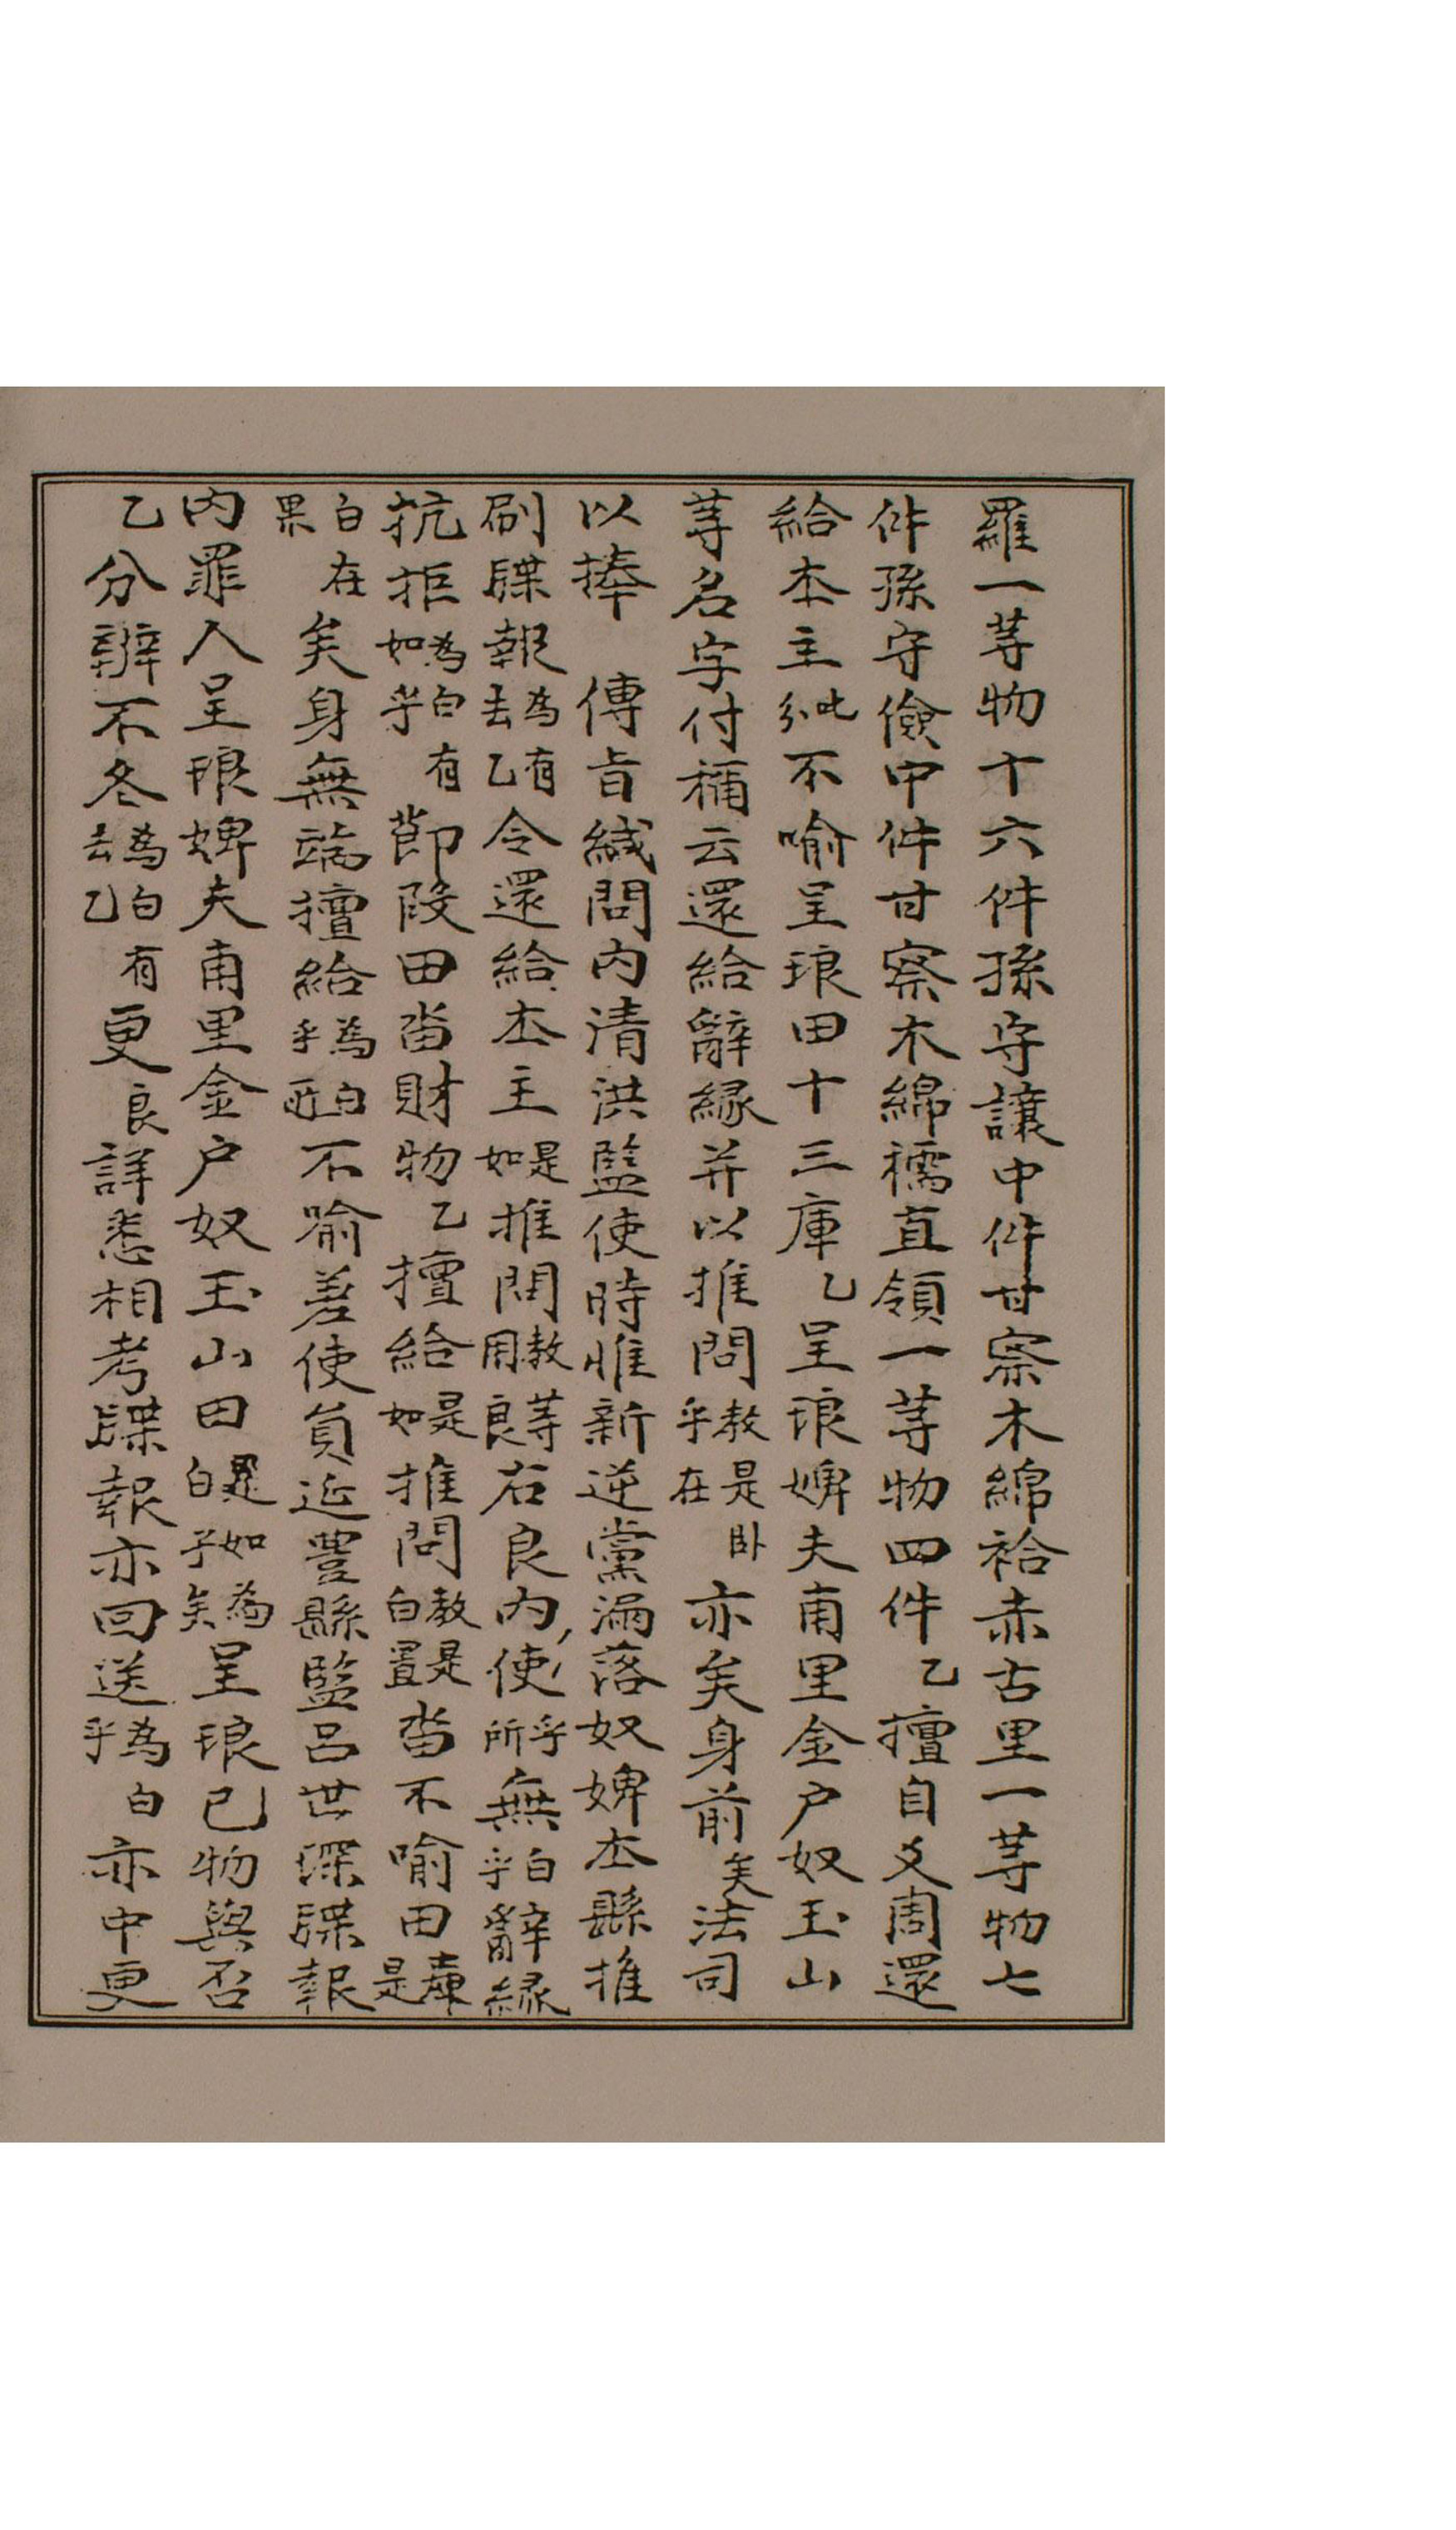 羅一䒭物十六件孫守讓中件甘察木綿袷赤古里一䒭物七
件孫守儉中件甘察木綿襦直領一䒭物四件乙擅自爻周還
給夲主此分不喻呈琅田十三庫乙呈琅婢夫甫里金戶奴玉山
䒭名字付稱云還給辭緣并以推問教是卧乎在亦矣身前矣法司
以捧　傳旨緘問內清洪監使時惟新逆黨漏落奴婢夲縣推
刷牒報為有去乙令還給夲主是如推問教䒭用良右良內使乎所無白乎辭緣
抗拒為白有如乎節段田畓財物乙擅給是如推問教是白置畓不喻田庫是
白在果矣身無端擅給為白乎㫆不喻差使員延豊縣監呂世深牒報
內罪人呈琅婢夫甫里金戶奴玉山田是如為白乎矣呈琅已物與否
乙分辨不冬為白有去乙更良詳悉相考牒報亦回送為白乎亦中更